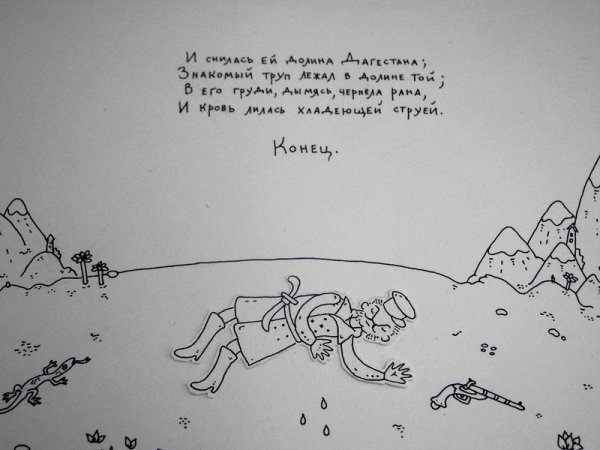 И снилась ей долина Дагестана;
Знакомый труп лежал в долине той;
В его груди, дымясь, чернела рана,
И кровь лилась хладеющей струей.
Конец.